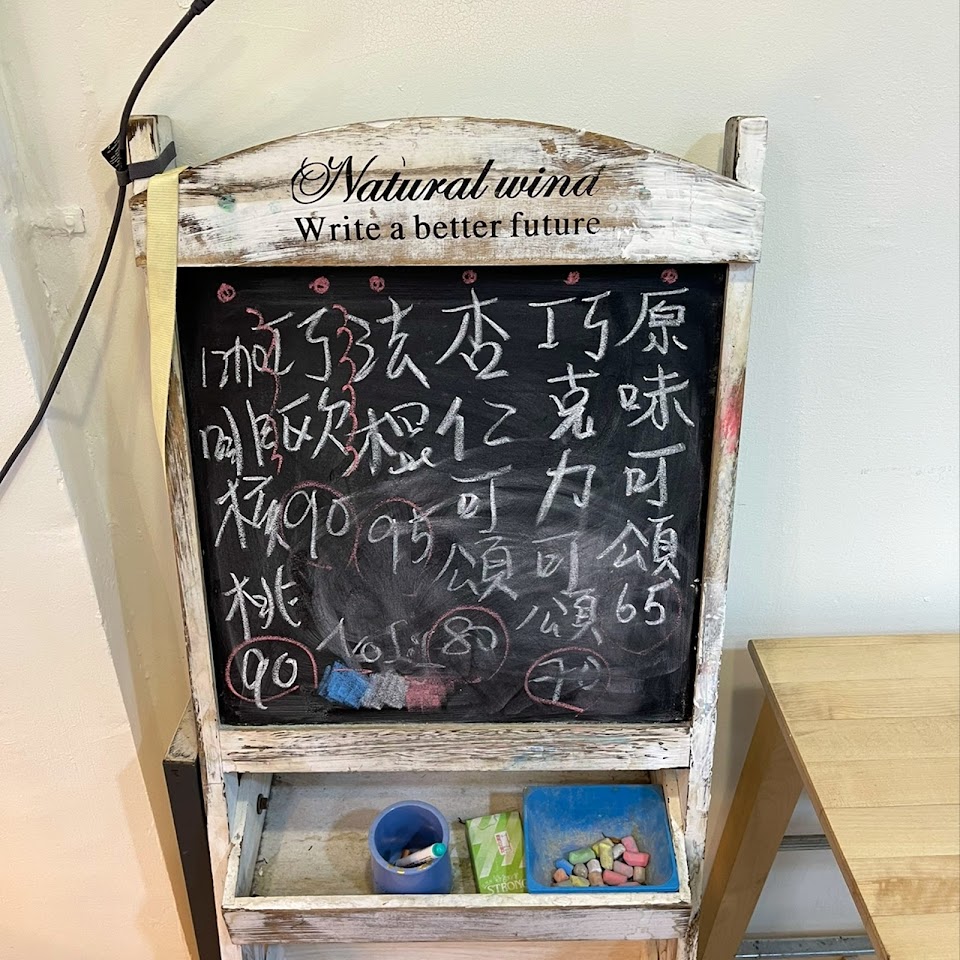 Natural wind
Write a better future
原味可頌 65
巧克力可頌 70
杏仁可頌 80
法棍 95
巧歐 90
咖啡核桃 90
STRONG